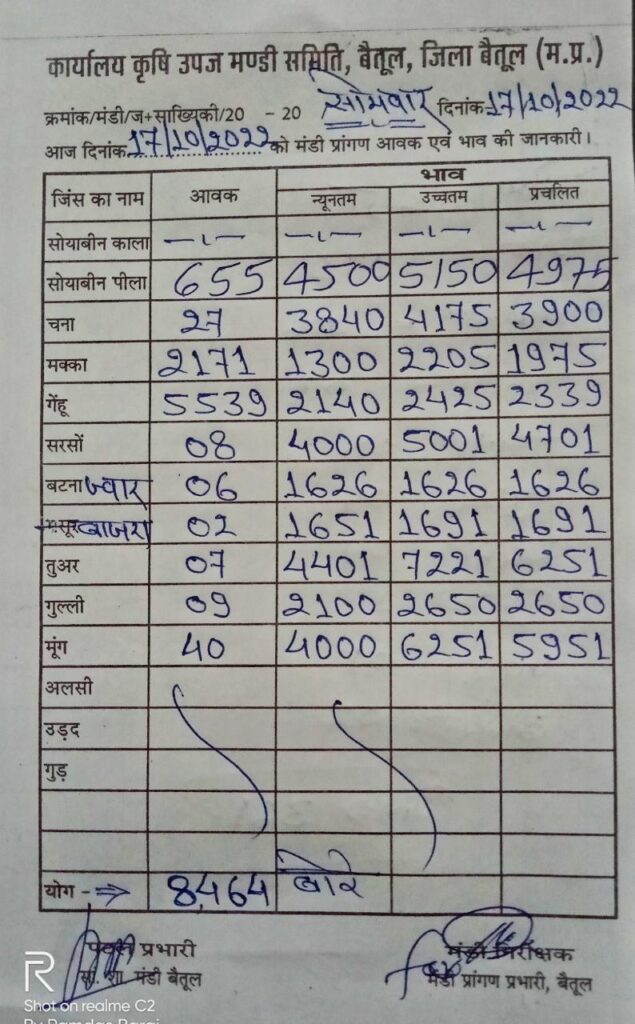 कार्यालय कृषि उपज मण्डी समिति, बैतूल, जिला बैतूल (म.प्र.)
क्रमांक/मंडी/ज+साख्यिकी/20 - 20 सोमवार दिनांक 17/10/2022
आज दिनांक 17/10/2022 को मंडी प्रांगण आवक एवं भाव की जानकारी।
भाव
जिंस का नाम आवक न्यूनतम उच्चतम प्रचलित
सोयाबीन काला -ı- -ı- -ı- -ı-
सोयाबीन पीला 655 4500 5150 4975
चना 27 3840 4175 3900
मक्का 2171 1300 2205 1975
गेंहू 5539 2140 2425 2339
सरसों 08 4000 5001 4701
बटना ज्वार 06 1626 1626 1626
मसूर बाजरा 02 1651 1691 1691
तुअर 07 4401 7221 6251
गुल्ली 09 2100 2650 2650
मूंग 40 4000 6251 5951
अलसी
उड़द
गुड़
योग -⇒ 8464 बोरे
प्रभारी मंडी निरीक्षक
मंडी बैतूल मंडी प्रांगण प्रभारी, बैतूल
R
Shot on realme C2
By Ramdas Barai